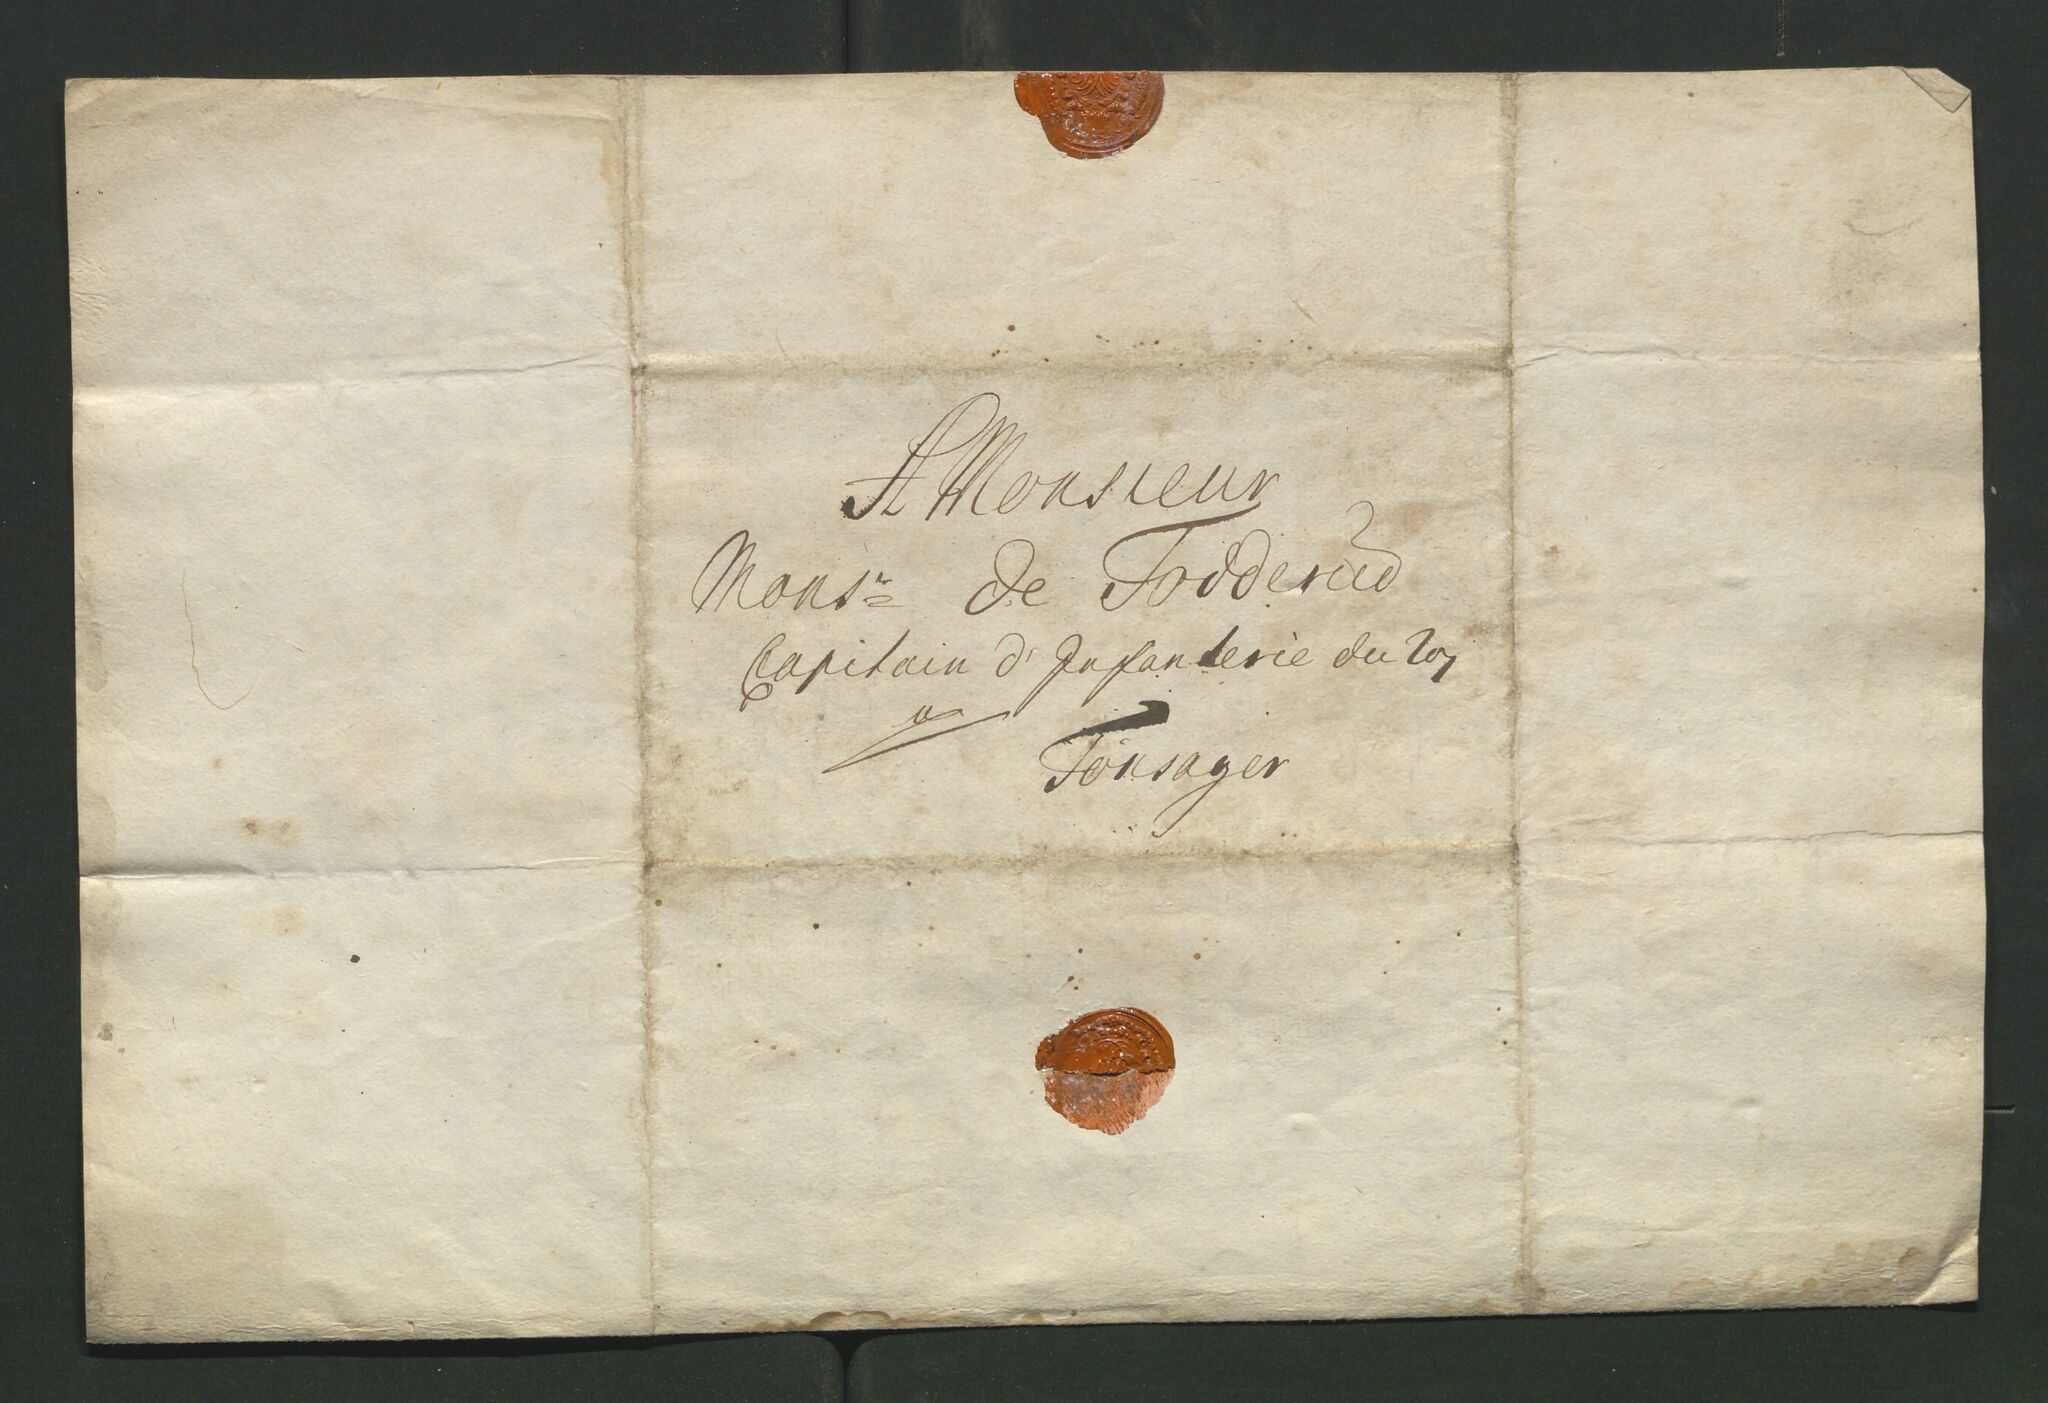 A Monsieur
Monsr de Todderud
Capitain d'Infanterie du Roy
à
Tonsager